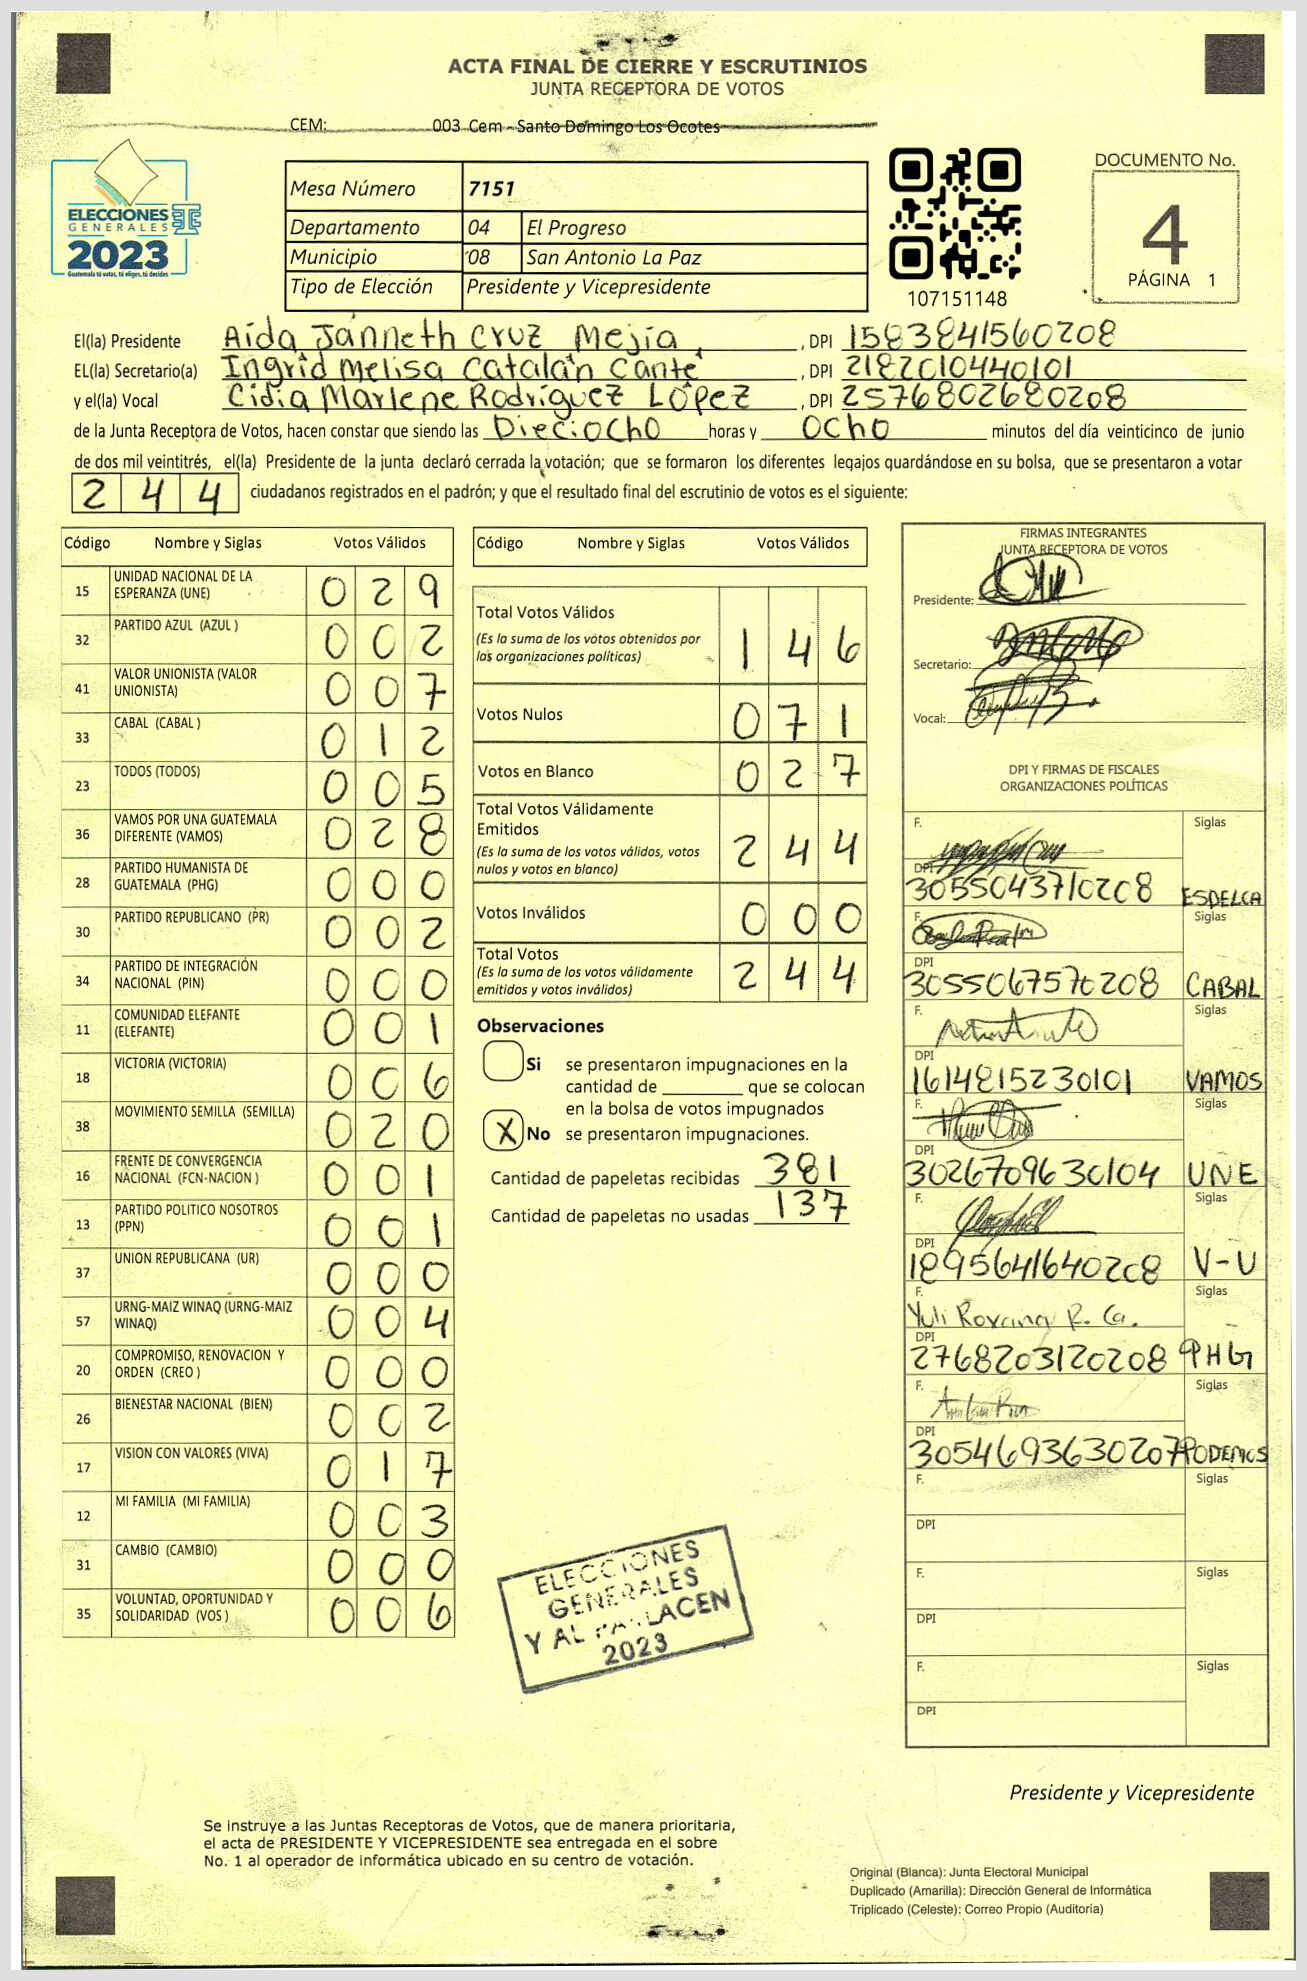 ACTA FINAL DE CIERRE Y ESCRUTINIOS
JUNTA RECEPTORA DE VOTOS
CEM: 003 Cem - Santo Domingo Los Ocotes
ELECCIONES
GENERALES
2023
Guatemala tú votas, tú eliges, tú decides
Mesa Número 7151
Departamento 04 El Progreso
Municipio 08 San Antonio La Paz
Tipo de Elección Presidente y Vicepresidente
107151148
DOCUMENTO No.
4
PÁGINA 1
El(la) Presidente Aida Janneth Cruz Mejía, DPI 1583841560208
EL(la) Secretario(a) Ingrid Melisa Catalán Canté, DPI 2182010440101
y el(la) Vocal Cidia Marlene Rodríguez López, DPI 2576802680208
de la Junta Receptora de Votos, hacen constar que siendo las Dieciocho horas y Ocho minutos del día veinticinco de junio
de dos mil veintitrés, el(la) Presidente de la junta declaró cerrada la votación; que se formaron los diferentes legajos guardándose en su bolsa, que se presentaron a votar
244 ciudadanos registrados en el padrón; y que el resultado final del escrutinio de votos es el siguiente:
Código Nombre y Siglas Votos Válidos
15 UNIDAD NACIONAL DE LA ESPERANZA (UNE) 029
32 PARTIDO AZUL (AZUL ) 002
41 VALOR UNIONISTA (VALOR UNIONISTA) 007
33 CABAL (CABAL ) 012
23 TODOS (TODOS) 005
36 VAMOS POR UNA GUATEMALA DIFERENTE (VAMOS) 028
28 PARTIDO HUMANISTA DE GUATEMALA (PHG) 000
30 PARTIDO REPUBLICANO (PR) 002
34 PARTIDO DE INTEGRACIÓN NACIONAL (PIN) 000
11 COMUNIDAD ELEFANTE (ELEFANTE) 001
18 VICTORIA (VICTORIA) 006
38 MOVIMIENTO SEMILLA (SEMILLA) 020
16 FRENTE DE CONVERGENCIA NACIONAL (FCN-NACION ) 001
13 PARTIDO POLITICO NOSOTROS (PPN) 001
37 UNION REPUBLICANA (UR) 000
57 URNG-MAIZ WINAQ (URNG-MAIZ WINAQ) 004
20 COMPROMISO, RENOVACION Y ORDEN (CREO ) 000
26 BIENESTAR NACIONAL (BIEN) 002
17 VISION CON VALORES (VIVA) 017
12 MI FAMILIA (MI FAMILIA) 003
31 CAMBIO (CAMBIO) 000
35 VOLUNTAD, OPORTUNIDAD Y SOLIDARIDAD (VOS ) 006
Código Nombre y Siglas Votos Válidos
Total Votos Válidos 146
(Es la suma de los votos obtenidos por
las organizaciones políticas)
Votos Nulos 071
Votos en Blanco 027
Total Votos Válidamente
Emitidos 244
(Es la suma de los votos válidos, votos
nulos y votos en blanco)
Votos Inválidos 000
Total Votos 244
(Es la suma de los votos válidamente
emitidos y votos inválidos)
Observaciones
Si se presentaron impugnaciones en la
cantidad de ________ que se colocan
en la bolsa de votos impugnados
X No se presentaron impugnaciones.
Cantidad de papeletas recibidas 381
Cantidad de papeletas no usadas 137
ELECCIONES
GENERALES
Y AL PARLACEN
2023
FIRMAS INTEGRANTES
JUNTA RECEPTORA DE VOTOS
Presidente:
Secretario:
Vocal:
DPI Y FIRMAS DE FISCALES
ORGANIZACIONES POLÍTICAS
F. Siglas
DPI 3055043710208 ESDELCA
F. Siglas
DPI 3055067570208 CABAL
F. Siglas
DPI 1614815230101 VAMOS
F. Siglas
DPI 3026709630104 UNE
F. Siglas
DPI 1895641640208 V-U
F. Yuli Roxana R. Ca. Siglas
DPI 2768203120208 PHG
F. Siglas
DPI 3054693630207 PODEMOS
F. Siglas
DPI
F. Siglas
DPI
F. Siglas
DPI
Presidente y Vicepresidente
Se instruye a las Juntas Receptoras de Votos, que de manera prioritaria,
el acta de PRESIDENTE Y VICEPRESIDENTE sea entregada en el sobre
No. 1 al operador de informática ubicado en su centro de votación.
Original (Blanca): Junta Electoral Municipal
Duplicado (Amarilla): Dirección General de Informática
Triplicado (Celeste): Correo Propio (Auditoría)